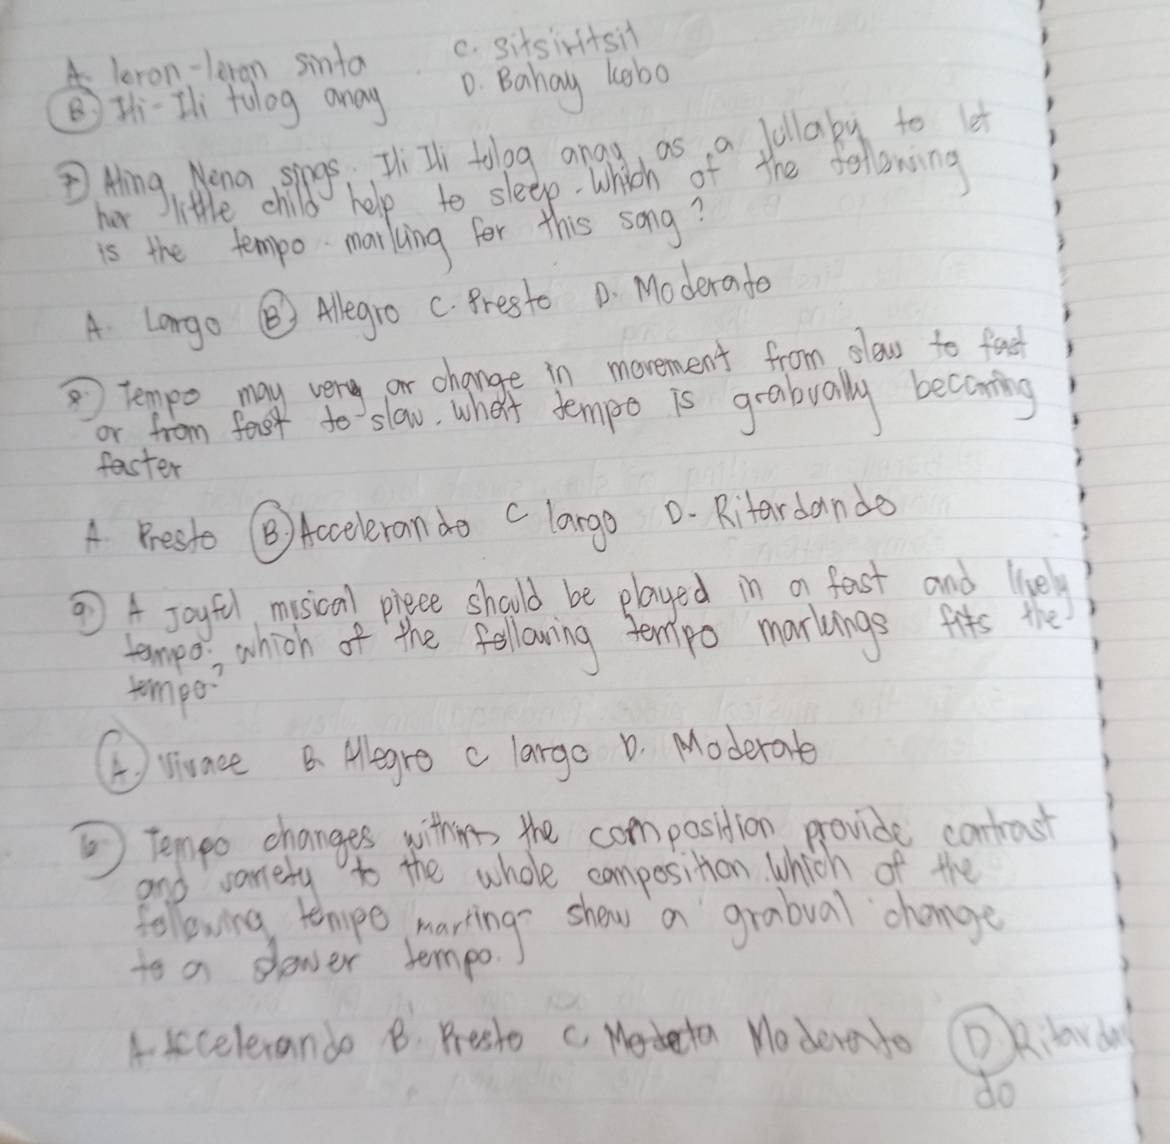 A. leron-leron sinta C. sitsiritsit
B. Ili-Ili tulog anay D. Bahay kobo
7) Aling Nena sings. Ili Ili tolog anay as a lullaby to let
her little child help to sleep. Which of the following
is the tempo marking for this song?
A. Largo B. Allegro C. Presto D. Moderato
8.) Tempo may very or change in movement from slow to fast
or from fast to slow. what tempo is grabually becoming
faster
A. Presto B. Accelerando C largo D. Ritardando
9.) A Joyful musical piece should be played in a fast and lively
tempo. which of the following tempo markings fits the
tempo?
A. Vivace B. Allegro C largo D. Moderato
10) Tempo changes within the composition provide contrast
and variety to the whole composition. Which of the
following tempo marking show a grabual change
to a slower tempo.
A. Accelerando B. Presto C. Moderato D. Ritardan
do